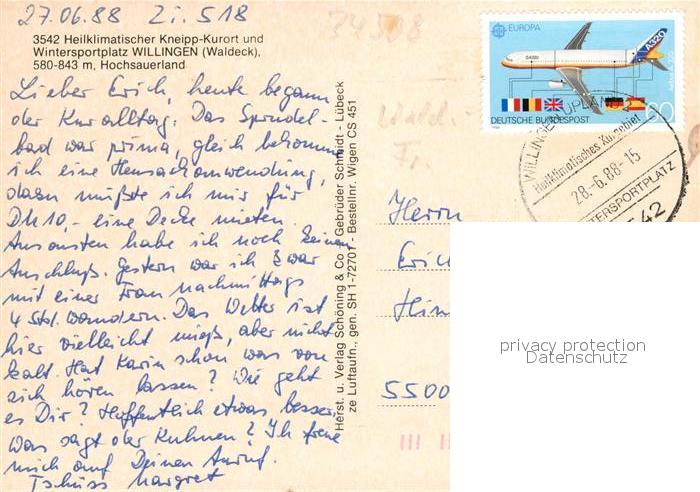 27.06.88 Zi. 518
3542 Heilklimatischer Kneipp-Kurort und
Wintersportplatz WILLINGEN (Waldeck),
580-843 m, Hochsauerland
Lieber Erich, heute begann
der Kuralltag. Das Sprudel-
bad war prima, gleich bekomme
ich eine Heusackanwendung,
dazu müßte ich mir für
DM 10,- eine Decke mieten.
Ansonsten habe ich noch keinen
Anschluß. Gestern war ich zwar
mit einer Frau nachmittags
4 Std. wandern. Das Wetter ist
hier vielleicht mieß, aber nicht
kalt. Hat Karin schon was von
sich hören lassen? Wie geht
es Dir? Hoffentlich etwas besser.
Was sagt der Kuhnen? Ich freue
mich auf Deinen Anruf.
Tschüss Margret
Herst. u. Verlag Schöning & Co · Gebrüder Schmidt - Lübeck
ze Luftaufn., gen. SH 1-72701 - Bestellnr. Wigen CS 451
74508
EUROPA
A320
DEUTSCHE BUNDESPOST
60
WILLINGEN (UPLAND)
Heilklimatisches Kurgebiet
28.-6.88-15
WINTERSPORTPLATZ
3542
Herrn
Eric
Hein
5500
privacy protection
Datenschutz